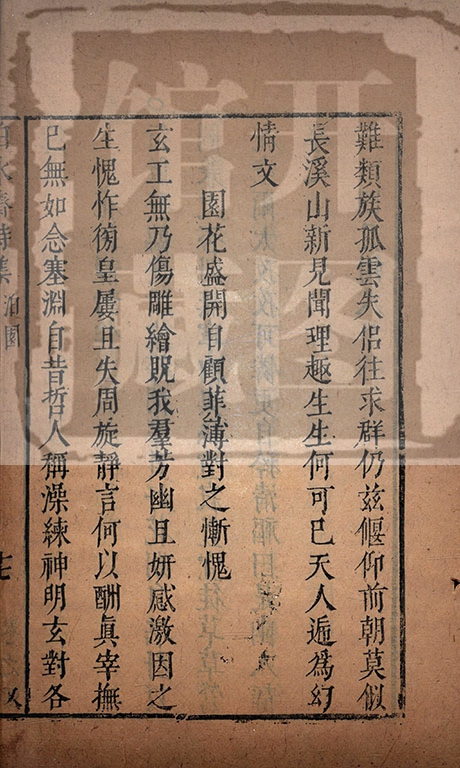 難類族孤雲失侶往求群仍兹偃仰前朝莫似
長溪山新見聞理趣生生何可已天人遞爲幻
情文
園花盛開自顧菲薄對之慚愧
玄工無乃傷雕繪旣我羣芳幽且妍感激因之
生愧怍徬皇屢且失周旋靜言何以酬眞宰撫
已無如念塞淵自昔哲人稱澡練神明玄對各
白水齋詩集 泊園
开图
馆藏